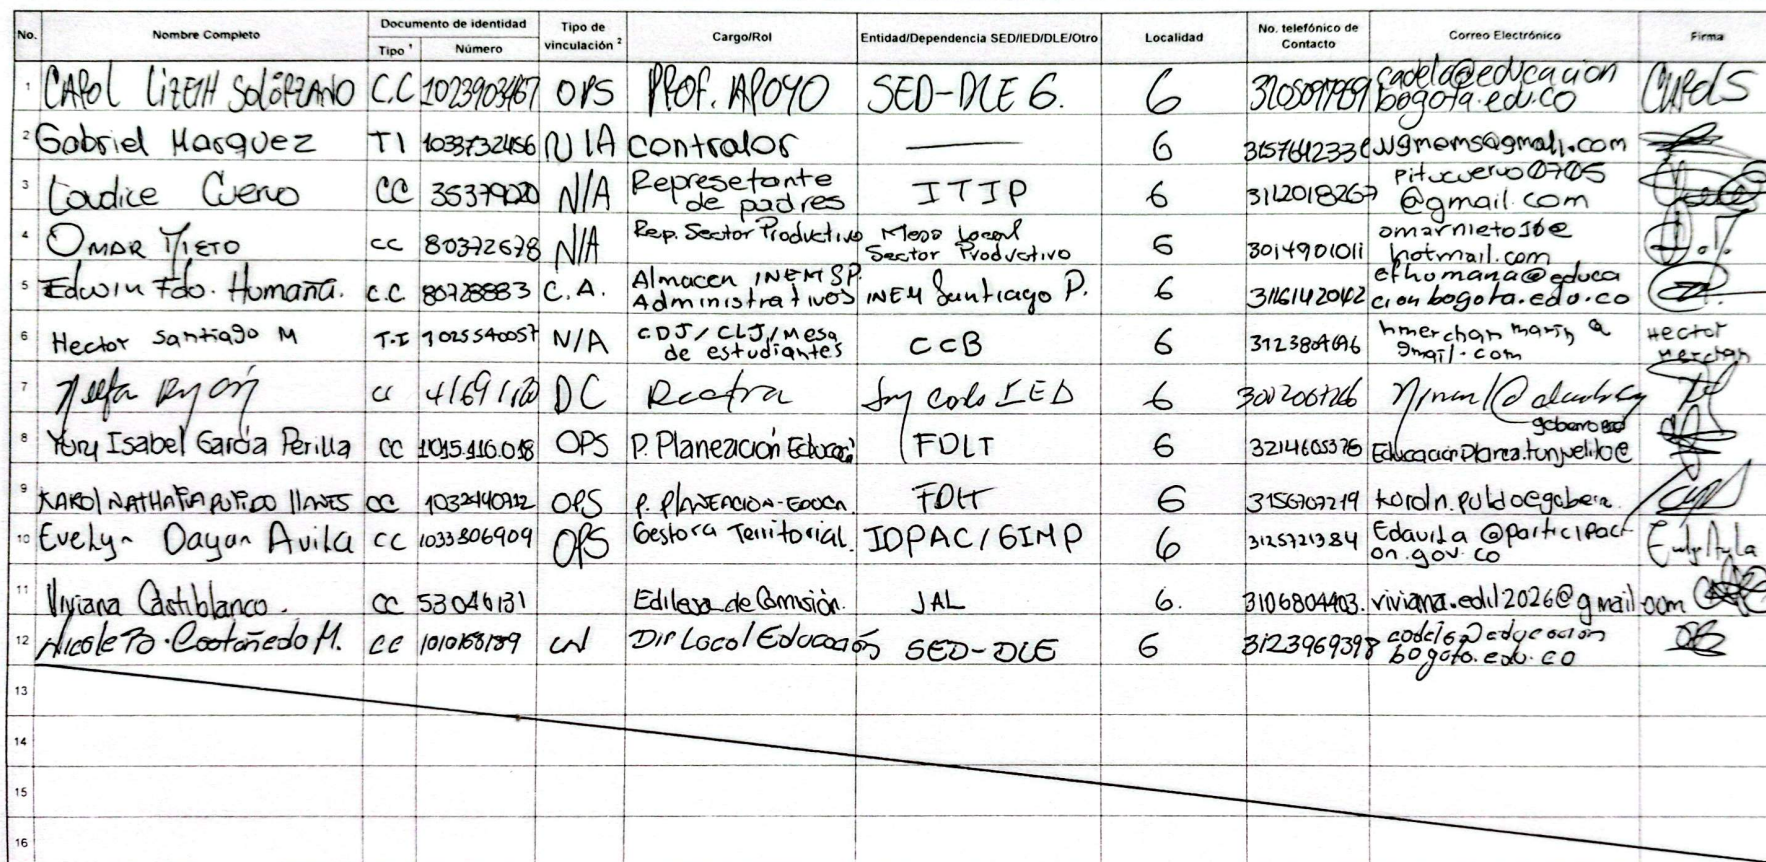 No. Nombre Completo Documento de identidad Tipo de vinculación ² Cargo/Rol Entidad/Dependencia SED/IED/DLE/Otro Localidad No. telefónico de Contacto Correo Electrónico Firma
Tipo ¹ Número
1 CAROL LIZETH SOLÓRZANO C.C 1023903467 OPS PROF. APOYO SED-DLE 6. 6 cadel6@educacion
bogota.edu.co CAROLS
2 Gabriel Marquez TI 1033732456 N/A contralor — 6
3 Cuervo CC 35379020 N/A Represetante
de padres ITIP 6 3112018267 pitucuervo0705
@gmail.com
4 OMAR NIETO CC 80372678 N/A Rep. Sector Productivo Mesa Local
Sector Productivo 6 3014901011 omarnieto16@
hotmail.com
5 Edwin Fdo. Humaña. C.C 80728883 C.A. Almacen INEM SP.
Administrativos INEM Santiago P. 6 3116142042 efhumana@educa
cionbogota.edu.co
6 Hector Santiago M T.I 1025540057 N/A CDJ/CLJ/Mesa
de estudiantes CCB 6 3123804696 hmerchanmarin@
gmail.com Hector
Merchan
7 CC DC Rectora IED 6
8 Yury Isabel García Perilla CC 1015.416.018 OPS P. Planeación FDLT 6 3214605376
9 KAROL NATHALIA PULIDO LLANES CC 1032440712 OPS P. PLANEACION-EDUCA. FDLT 6 3156707219
10 Evelyn Dayan Avila CC 1033806909 OPS Gestora Territorial. IDPAC/GIMP 6 3125721384 Edavila@participaci
on.gov.co
11 Viviana Castiblanco. CC 53046131 Edilesa de Comisión. JAL 6. 3106804403. viviana.edil2026@gmail.com
12 Nicole Castañeda M. CC Dir Local Educación SED-DLE 6 3123969398 cadel6@educacion
bogota.edu.co
13
14
15
16